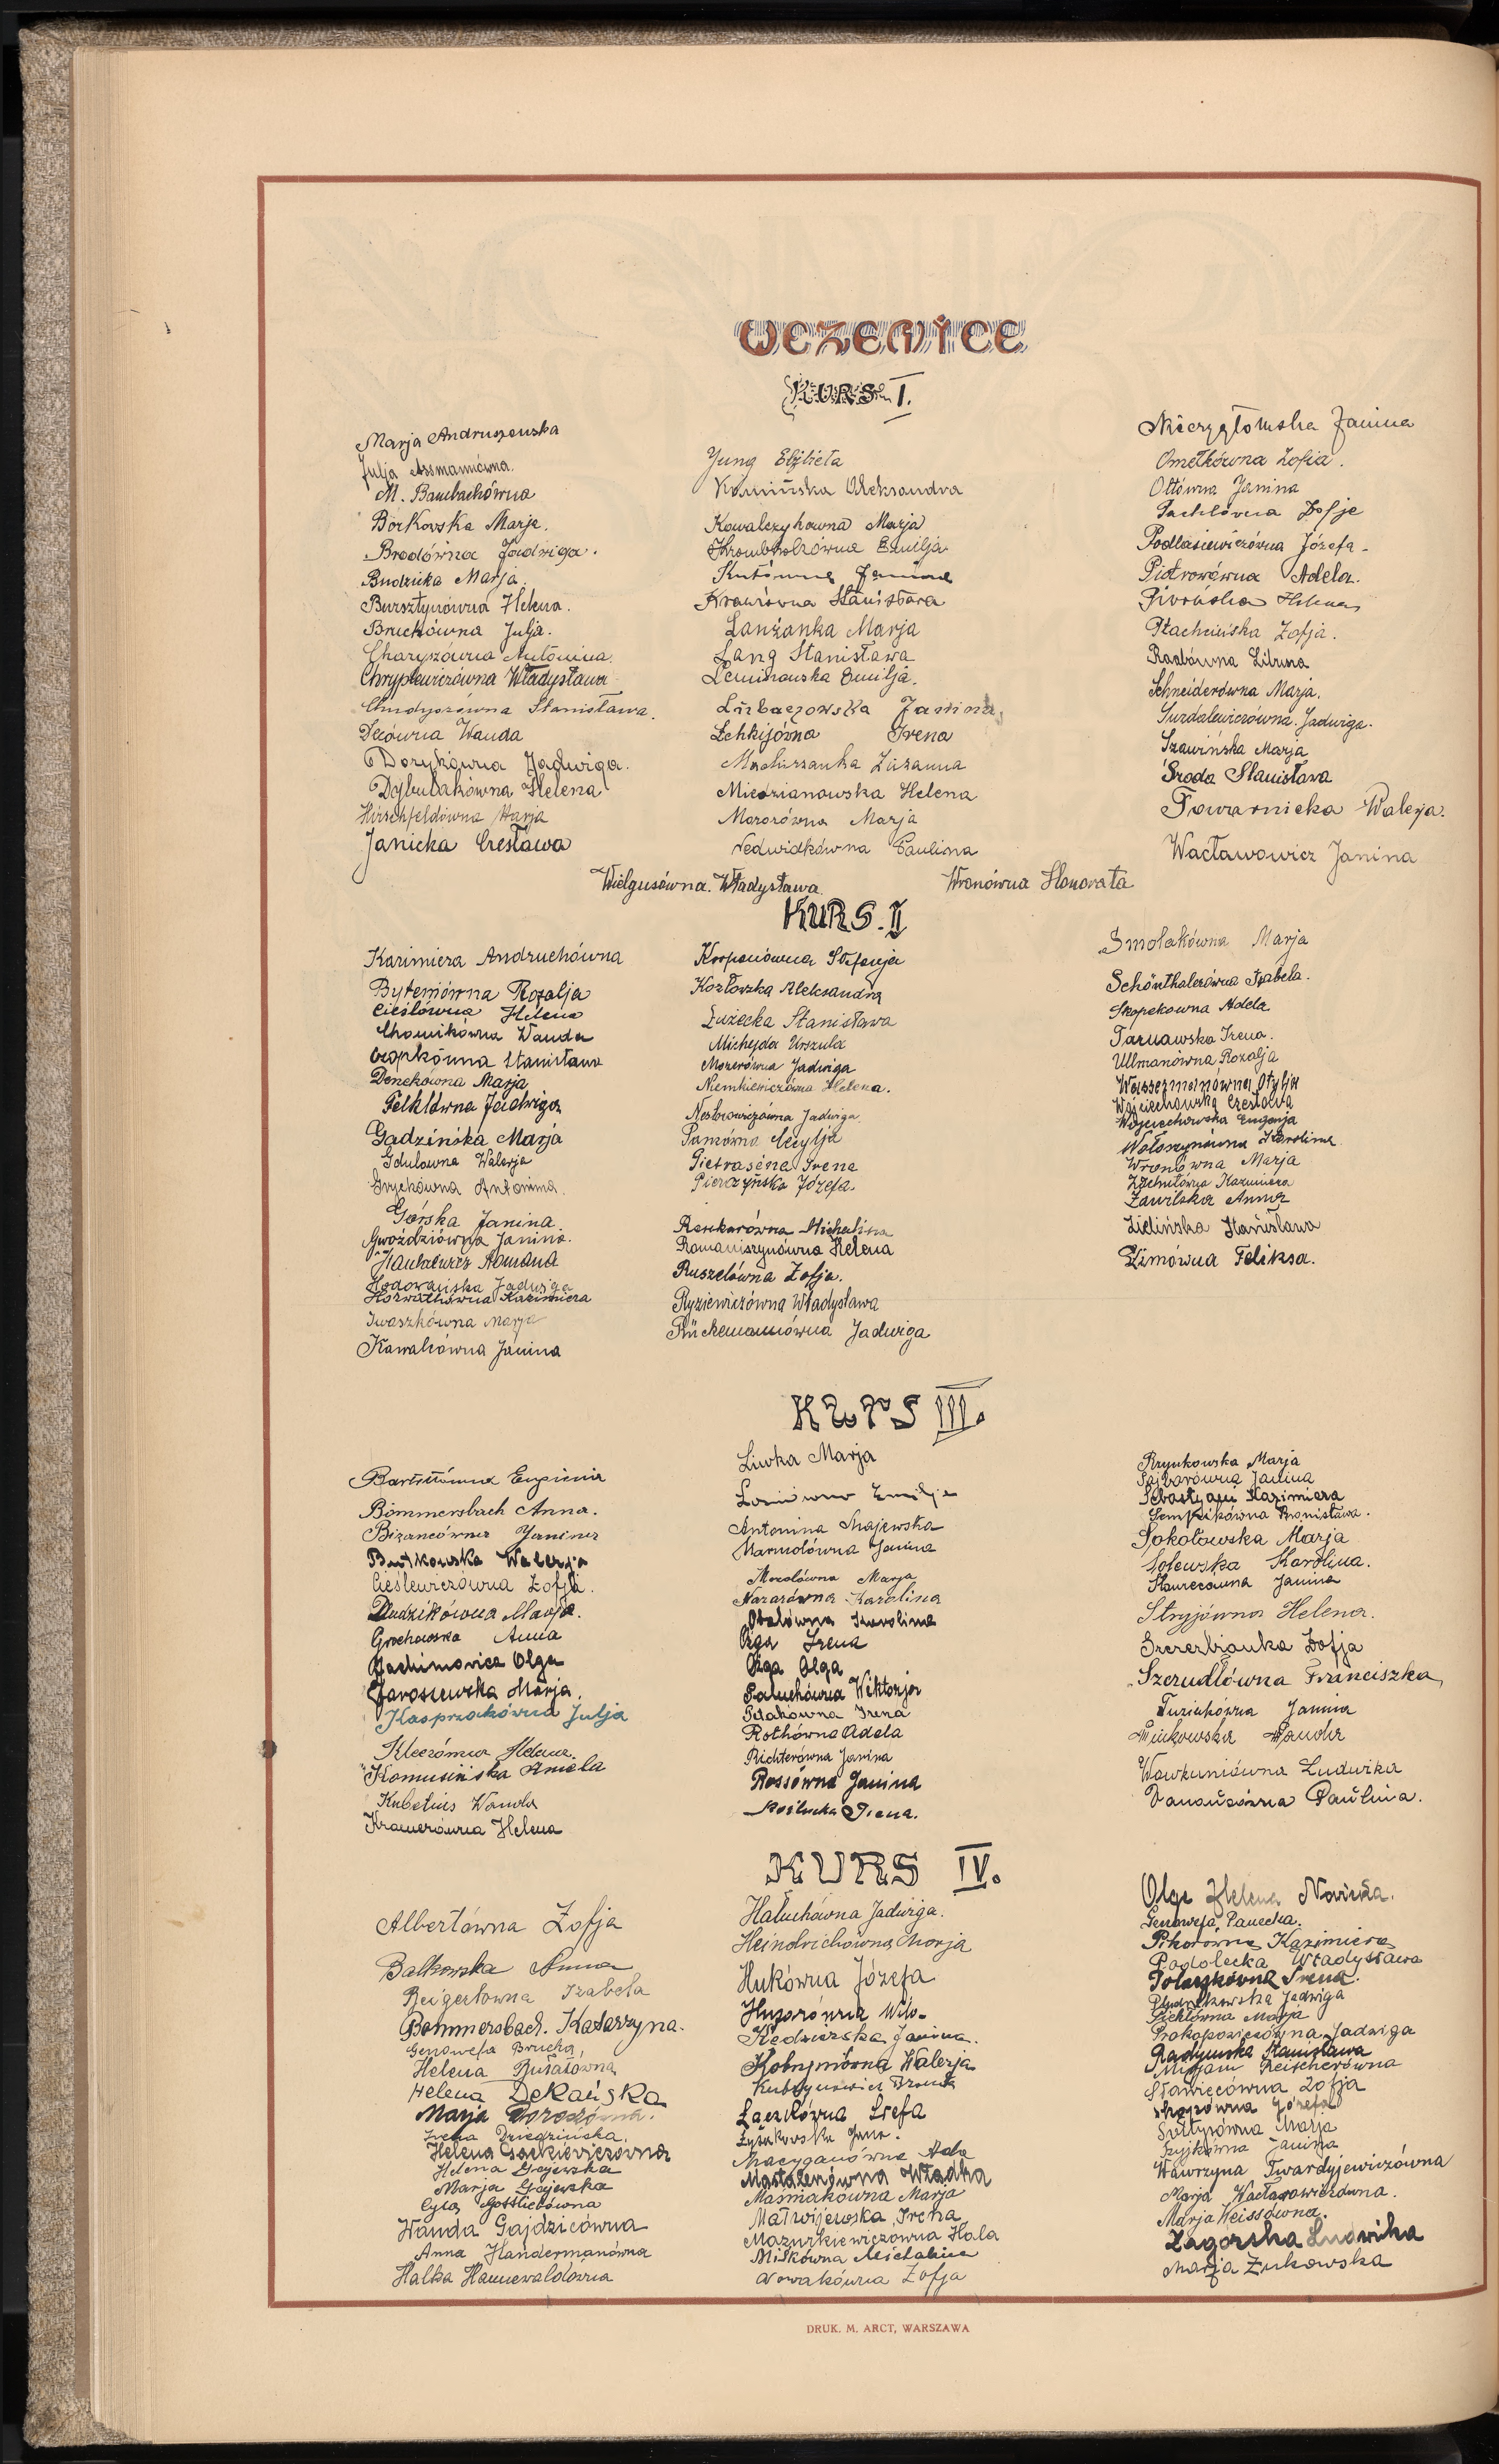 UCZENICE
KURS I.
Marja Andruszewska
Julja Assmanówna.
M. Bambachówna
Borkowska Marja.
Brodówna Jadwiga.
Budzicka Marja.
Bursztynówna Helena.
Bruchówna Julja.
Charyszówna Antonina.
Chryplewiczówna Władysława
Chudyszówna Stanisława.
Decówna Wanda
Dorykówna Jadwiga.
Dybulakówna Helena
Hirschfeldówna Marja
Janicka Czesława
Jung Elżbieta
Kamińska Aleksandra
Kowalczykowna Marja
Krombholzówna Emilja
Kutówna Janina
Krawsówna Stanisława
Lanżanka Marja
Lang Stanisława
Leminowska Emilja.
Lubaczowska Janina.
Lehkijówna Irena
Macherzanka Zuzanna
Miedzianowska Helena
Mazorówna Marja
Nedwidkówna Paulina
Nieczygłomska Janina
Ometkówna Zofia.
Ottówna Janina
Pachlówna Zofje
Podlasiewiczówna Józefa.
Piotrowówna Adela.
Piworska Helena
Płachcińska Zofja.
Raabówna Libuna
Schneiderówna Marja.
Surdalewiczówna Jadwiga.
Szawińska Marja
Środa Stanisława
Towarnicka Walerja.
Wacławowicz Janina
Wielgusówna. Władysława.
Wronówna Honorata
KURS. II
Kazimiera Andruchówna
Bytemówna Rozalja
Cieślówna Helena
Chomikówna Wanda
Czopkówna Stanisława
Denekówna Marja
Felklówna Jadwiga
Gadzińska Marja
Gdulowna Walerja
Gryckówna Antonina.
Górska Janina.
Gwoździówna Janina.
Hankiewicz Romana
Hodowańska Jadwiga
Horwathówna Kazimiera
Iwaszkówna Marja
Kowalsówna Janina
Korpanówna Stefanja
Kozłowska Aleksandra
Łużecka Stanisława
Michejda Urszula
Mozerówna Jadwiga
Niemkiewiczówna Helena.
Nestorowiczówna Jadwiga.
Pansówna Cecylja
Pietraséna Irena
Pierożyńska Józefa.
Renkarówna Michalina
Romaniszynówna Helena
Ruszelówna Zofja.
Ryziewiczówna Władysława
Rückemannówna Jadwiga
Smolakówna Marja
Schönthalerówna Izabela.
Skopekowna Adela
Tarnawska Irena.
Ullmanówna Rozalja
Wassermanówna Otylja
Wojciechowska Czesława
Wojciechowska Eugenja
Wołoszynówna Karolina
Wronówna Marja
Zachutówna Kazimiera
Zawilska Anna
Zielińska Stanisława
Zimówna Feliksa.
KURS III.
Bartlówna Eugenia
Bommersbach Anna.
Bizancówna Janina
Butkowska Walerja
Cieślewiczówna Zofja.
Dudzikówna Marja.
Grochowska Anna
Jachimowicz Olga
Jaroszewska Marja.
Kasprzakówna Julja
Kleerówna Helena.
Komusińska Aniela
Kubelius Wanda
Kramerówna Helena
Liwka Marja
Losiówna Emilja
Antonina Majewska
Marmolówna Janina
Mozolówna Marja
Nazarówna Karolina
Obalówna Karolina
Ożga Irena
Ożga Olga
Paluchówna Wiktorja
Ptakówna Irena
Rothówna Adela
Richterówna Janina
Rossówna Janina
Rożlucka Irena.
Rzynkowska Marja
Sajbarówna Janina
Sebastyani Kazimiera
Sempikówna Bronisława.
Sokołowska Marja
Solewska Karolina.
Stanecówna Janina
Stryjówna Helena.
Szczerbianka Zofja
Szerudłówna Franciszka,
Tuziakówna Janina
Wawkuniówna Ludwika
KURS IV.
Albertówna Zofja
Balkowska Anna
Beigertowna Izabela
Bommersbach. Katarzyna.
Genowefa Brucka,
Helena Bułatowna
Helena Dekańska
Marja Dorożówna.
Irena Dziedzińska.
Helena Gackiewiczówna
Helena Gajewska
Marja Gajewska
Cyla Gottliebówna
Wanda Gajdzicówna
Anna Handermanówna
Halka Hannewaldówna
Hałuchówna Jadwiga.
Heindrichówna Marja
Hukówna Józefa
Huzarówna Wila.
Kędzierska Janina.
Kobrynówna Walerja
Łączkówna Stefa
Łysakowska Jana.
Macyganówna Ada
Masłażenówna Władka
Maśniakówna Marja
Matwijewska Irena
Mazurkiewiczówna Hala
Miśkówna Michalina
Nowakówna Zofja
Olga Helena Nowicka.
Genowefa Panecka.
Pikorówna Kazimiera
Podolecka Władysława
Polaszkówna Irena.
Jadwiga
Pieklówna Marja
Prokopowiczówna Jadwiga
Radyńska Stanisława
Mirjam Reischerówna
Sławięcówna Zofja
Józefa
Sołtysówna Marja
Szyjkówna Janina
Wawrzyna Twardyjewiczówna
Marja Wacławowiczówna.
Marja Weissówna.
Zagórska Ludwika
Marja Żukowska
DRUK. M. ARCT, WARSZAWA